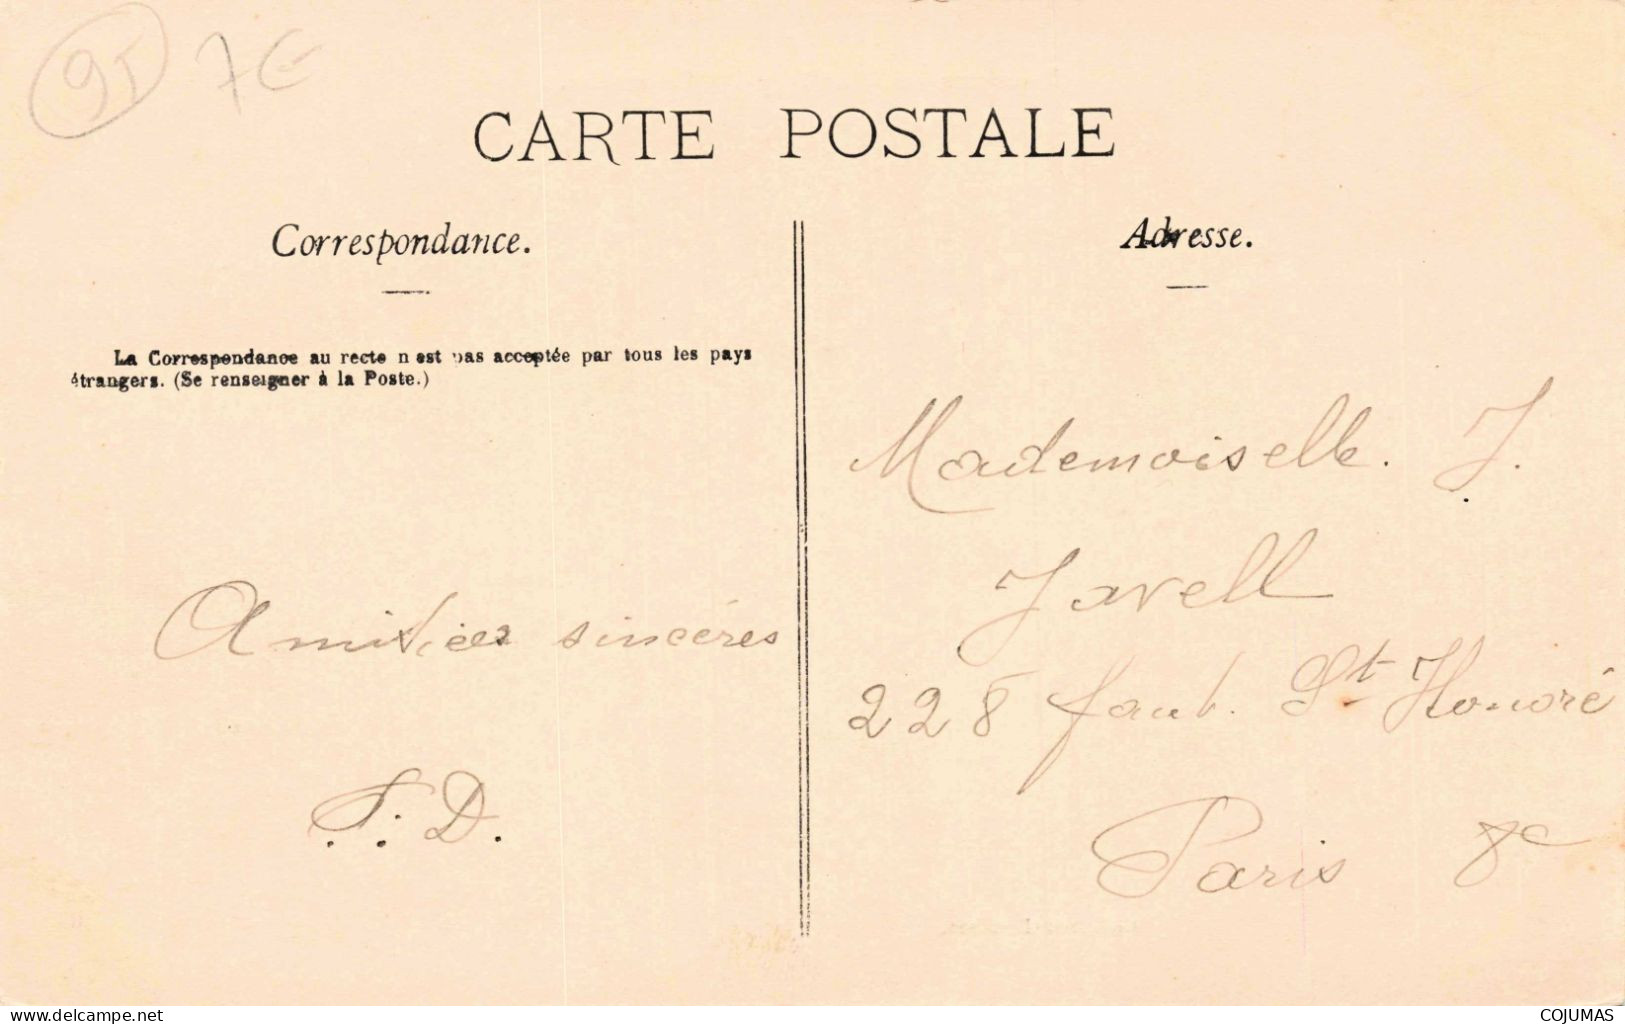 95 7€
CARTE POSTALE
Correspondance.
La Correspondance au recto n'est pas acceptée par tous les pays
étrangers. (Se renseigner à la Poste.)
Amitiés sincères
D.
Adresse.
Mademoiselle. J.
Javell
228 faub. St Honoré
Paris 8e
www.delcampe.net
COJUMAS